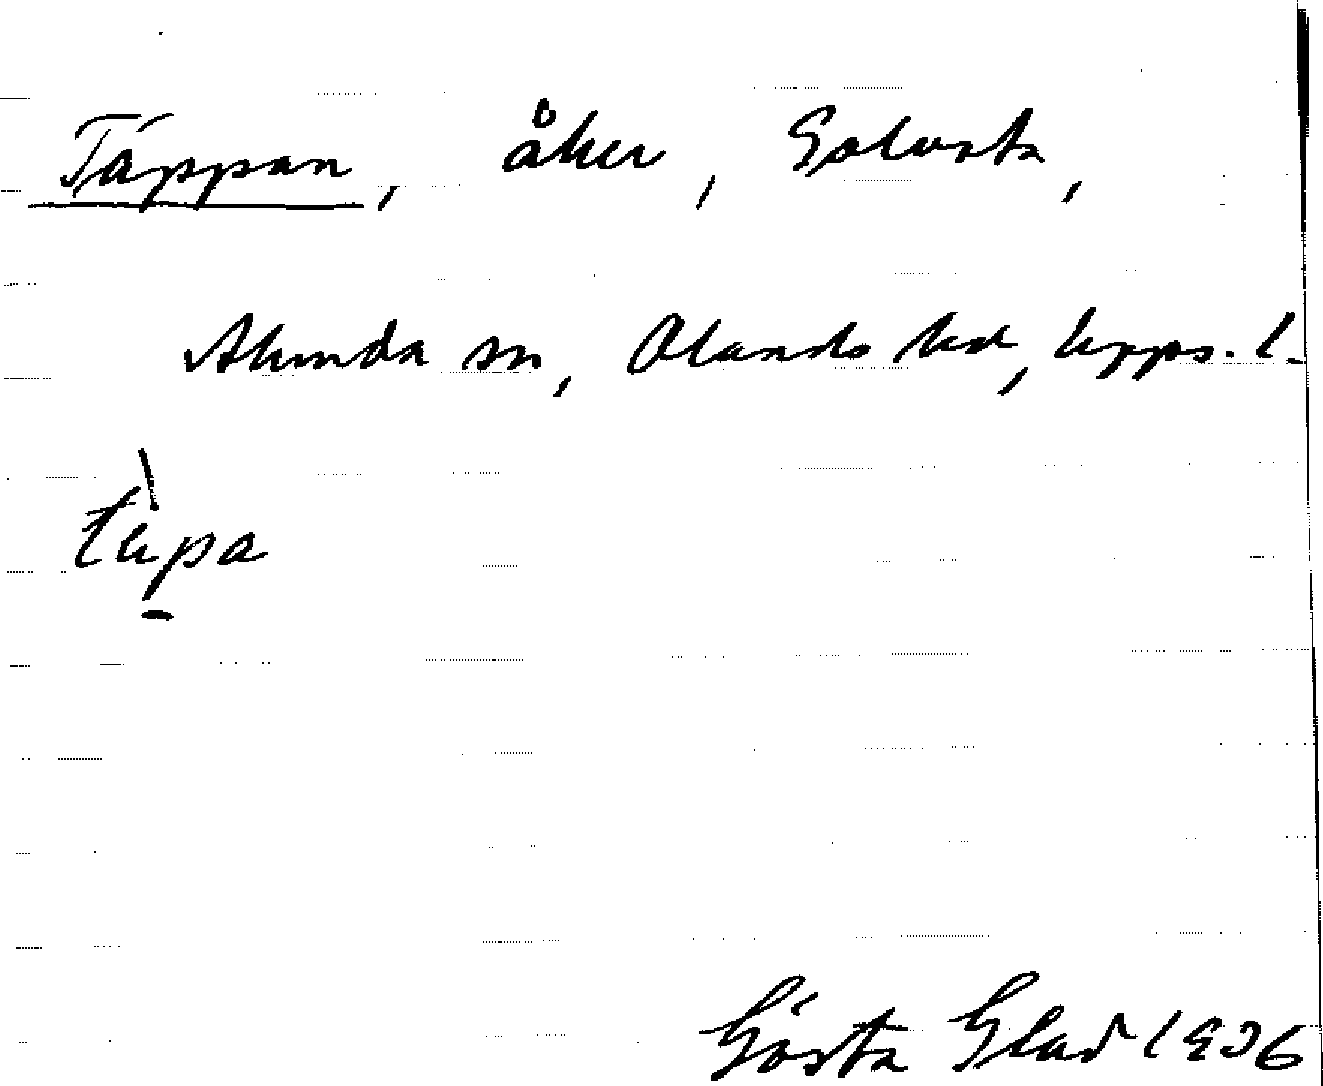 Täppan, åker, Golvasta,
Alunda sn, Olands hd, Upps. l.
Gösta Glad 1936